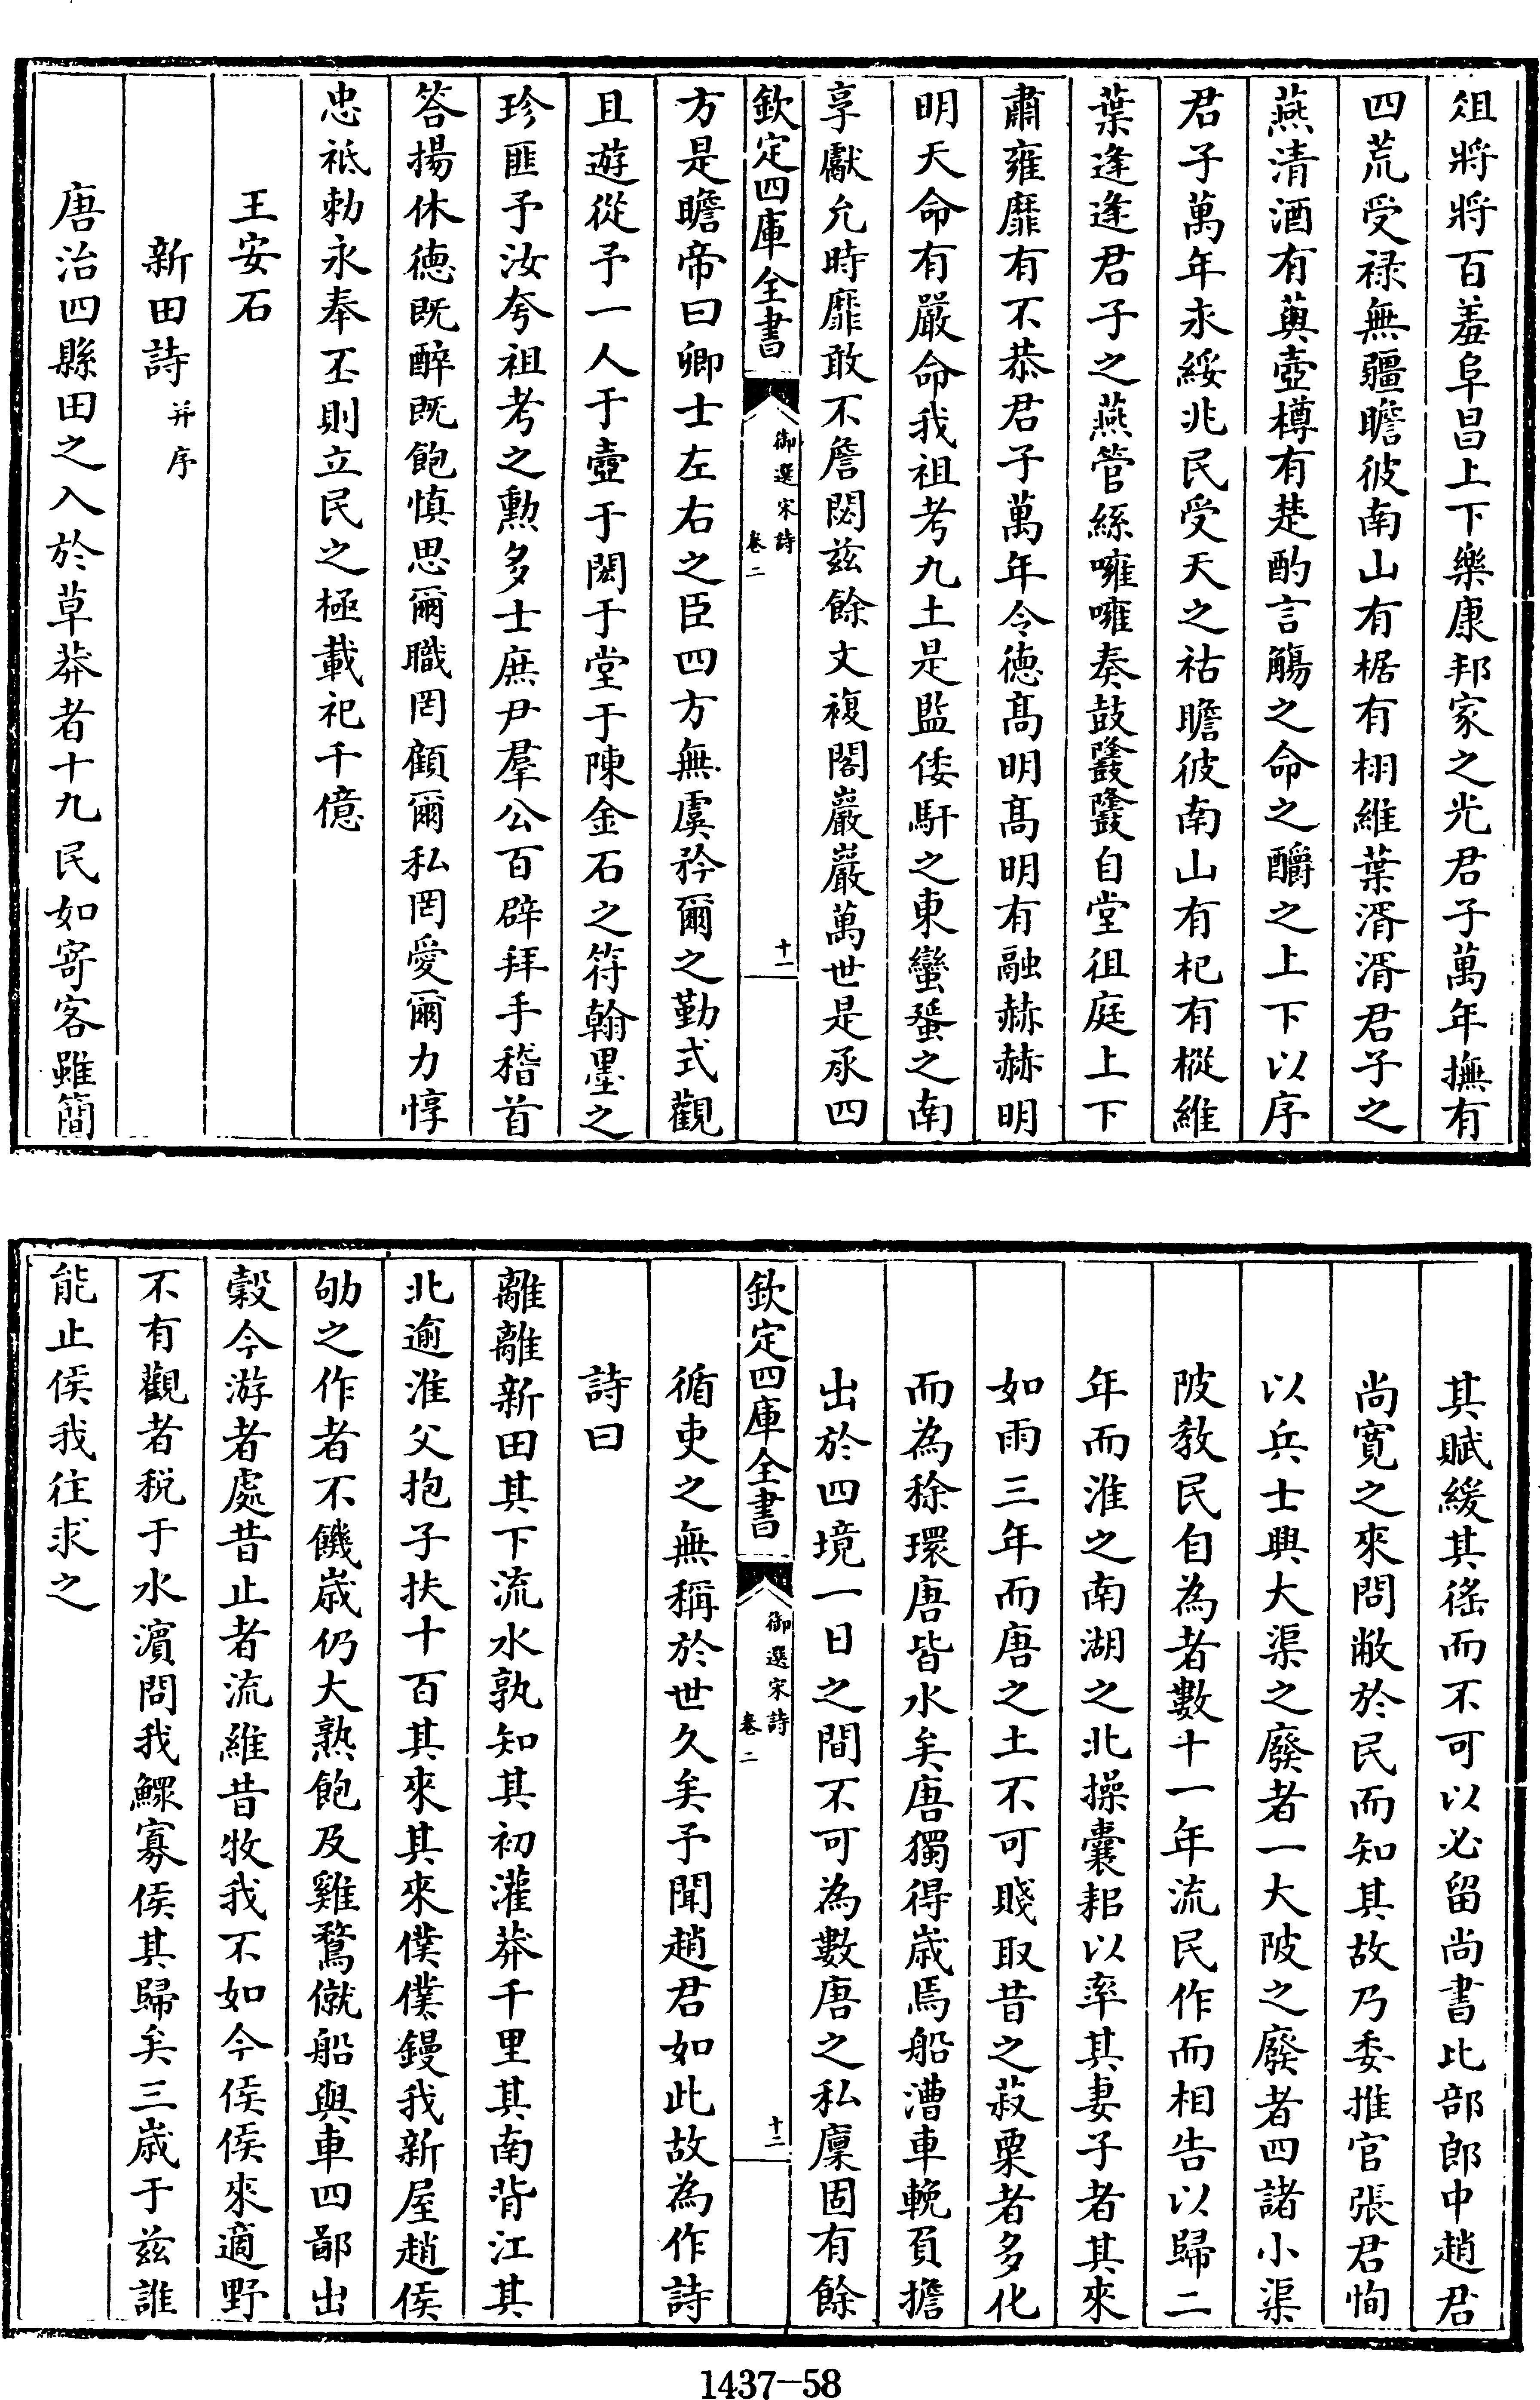 俎將將百羞阜昌上下樂康邦家之光君子萬年撫有
四荒受禄無疆瞻彼南山有椐有栩維葉湑湑君子之
燕清酒有藇壺樽有楚酌言觴之命之釂之上下以序
君子萬年永綏兆民受天之祜瞻彼南山有杞有樅維
葉逢逢君子之燕管絲噰噰奏鼓鼕鼕自堂徂庭上下
肅雍靡有不恭君子萬年令徳髙明髙明有融赫赫明
明天命有嚴命我祖考九土是監倭馯之東蠻蜑之南
享獻允時靡敢不詹閟兹餘文複閣巖巖萬世是承四
欽定四庫全書
御選宋詩
卷二
十一
方是瞻帝曰卿士左右之臣四方無虞矜爾之勤式觀
且遊從予一人于壼于閎于堂于陳金石之符翰墨之
珍匪予汝夸祖考之勲多士庶尹羣公百辟拜手稽首
答揚休徳既醉既飽慎思爾職罔顧爾私罔愛爾力惇
忠祗勅永奉丕則立民之極載祀千億
王安石
新田詩并序
唐治四縣田之入於草莽者十九民如寄客雖簡
其賦緩其徭而不可以必留尚書比部郎中趙君
尚寛之來問敝於民而知其故乃委推官張君恂
以兵士興大渠之廢者一大陂之廢者四諸小渠
陂教民自為者數十一年流民作而相告以歸二
年而淮之南湖之北操囊耜以率其妻子者其來
如雨三年而唐之土不可賤取昔之菽粟者多化
而為稌環唐皆水矣唐獨得歳焉船漕車輓負擔
出於四境一日之間不可為數唐之私廩固有餘
欽定四庫全書
御選宋詩
卷二
十二
循吏之無稱於世久矣予聞趙君如此故為作詩
詩曰
離離新田其下流水孰知其初灌莽千里其南背江其
北逾淮父抱子扶十百其來其來僕僕鏝我新屋趙侯
劬之作者不饑歳仍大熟飽及雞鶩僦船與車四鄙出
穀今游者處昔止者流維昔牧我不如今侯侯來適野
不有觀者税于水濱問我鰥寡侯其歸矣三歳于兹誰
能止侯我往求之
1437-58